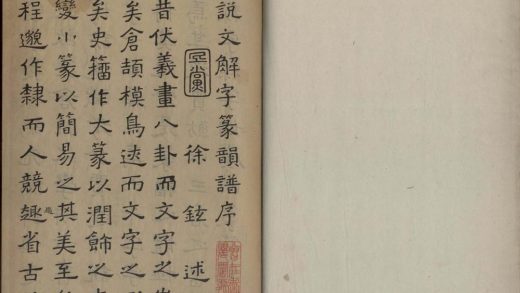 說文解字篆韻譜序
徐鉉述
昔伏羲畫八卦而文字之
矣倉頡模鳥迹而文字之
矣史籀作大篆以潤飾之
變小篆以簡易之其美至
程邈作隸而人競趣省古